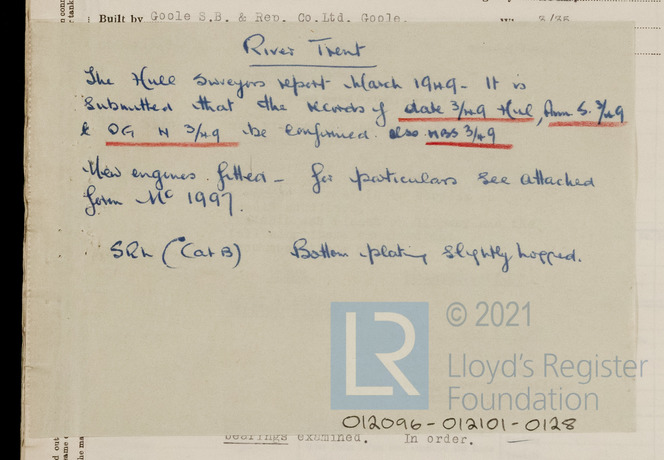 Built by Goole S.B. & Rep. Co.Ltd. Goole.
River Trent
The Hull Surveyors report March 1949 - It is
submitted that the records of date 3/49 Hul, Ann S. 3/49
& OG N 3/49 be confirmed. also MBS 3/49
New engines fitted - for particulars see attached
form Mc 1997.
SRL (Cat B) Bottom plating slightly hogged.
LR
© 2021
Lloyd's Register
Foundation
012096-012101-0128
bearings examined. In order.